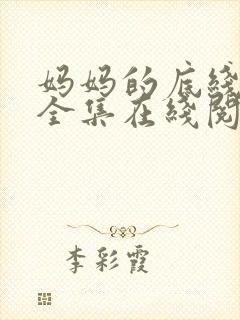 妈妈的底线
全集在线阅
李彩霞